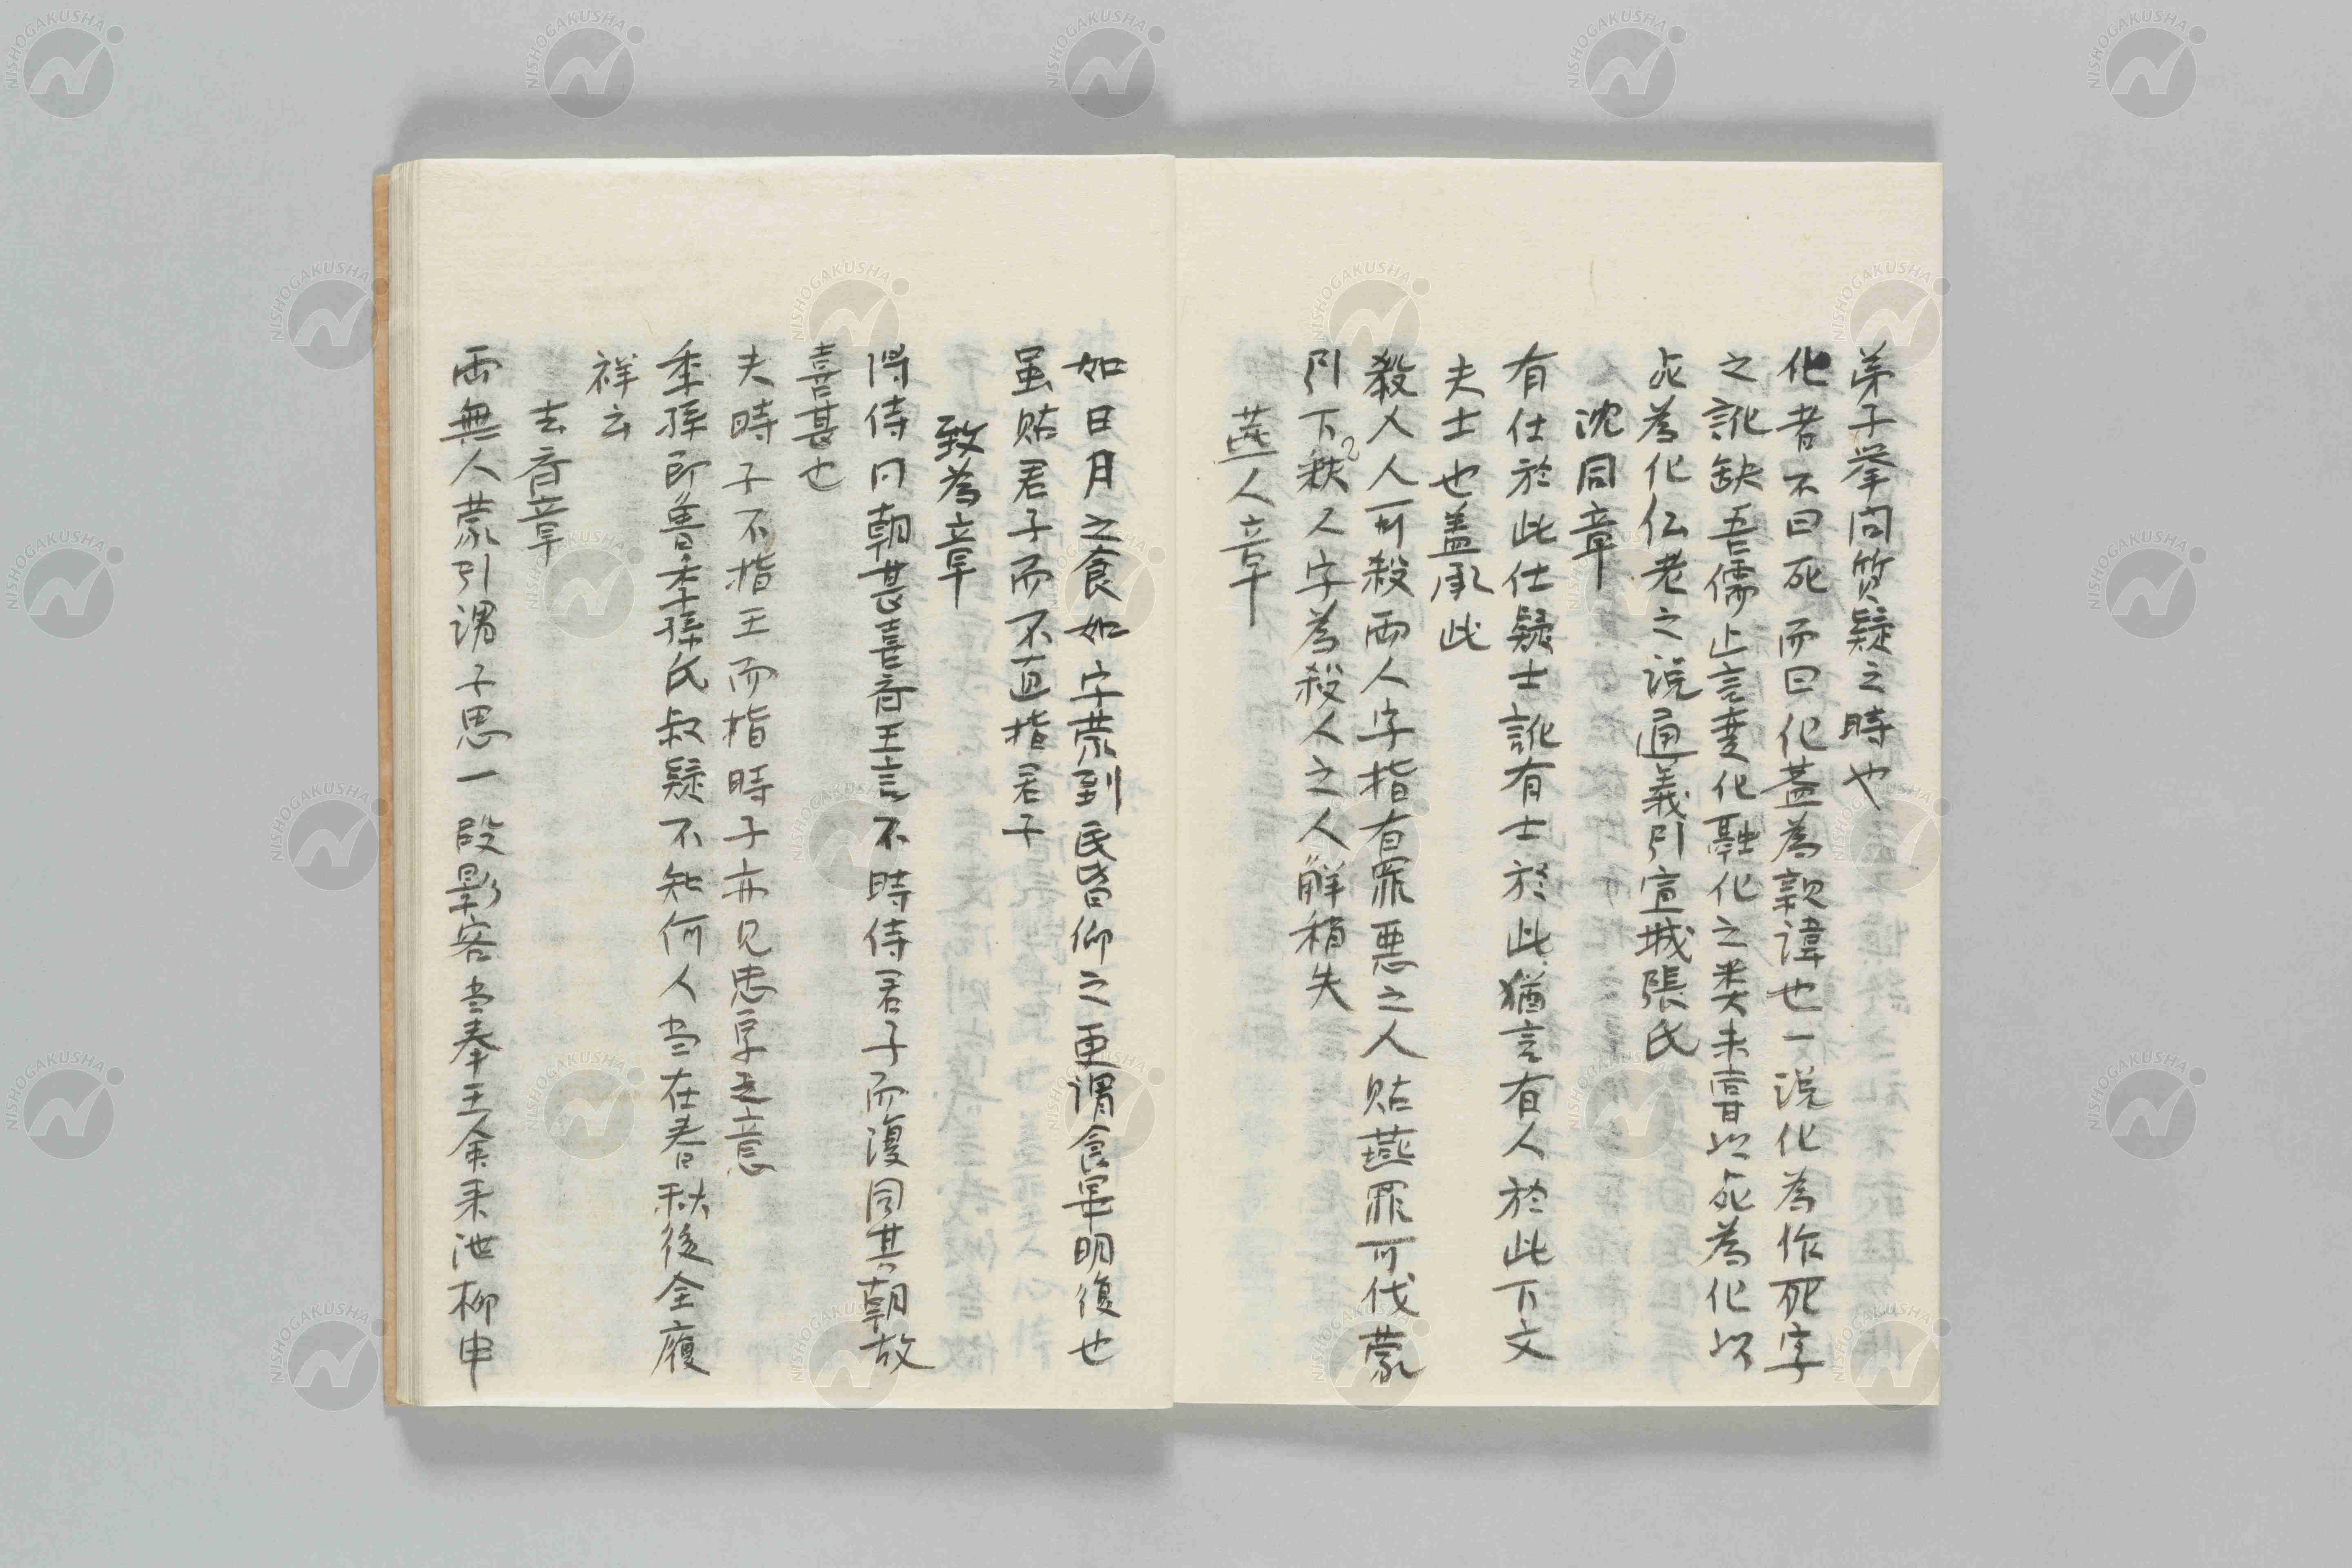 弟子挙問質疑之時也
化者不曰死而曰化蓋為親諱也一説化為作死字
之訛缺吾儒止言変化融化之类未嘗以死為化以
死為化仏老之説通義引宣城張氏
沈同章
有仕於此仕疑士訛有士於此猶言有人於此下文
夫士也盖承此
殺人人可殺両人字指有罪悪之人贴燕罪可伐蒙
引下𫞂人字為殺人之人解稍失
燕人章
如日月之食如字蒙到民皆仰之更謂食畢明復也
虽贴君子而不直指君子
致為章
得侍同朝甚喜斉王言不時侍君子而復同其朝故
喜甚也
夫時子不指王而指時子亦見忠厚之意
季孫即魯季孫氏叔疑不知何人当在春秋後全履
祥云
去斉章
両無人蒙引謂子思一段影客当奉王命来泄柳申
NISHOGAKUSHA